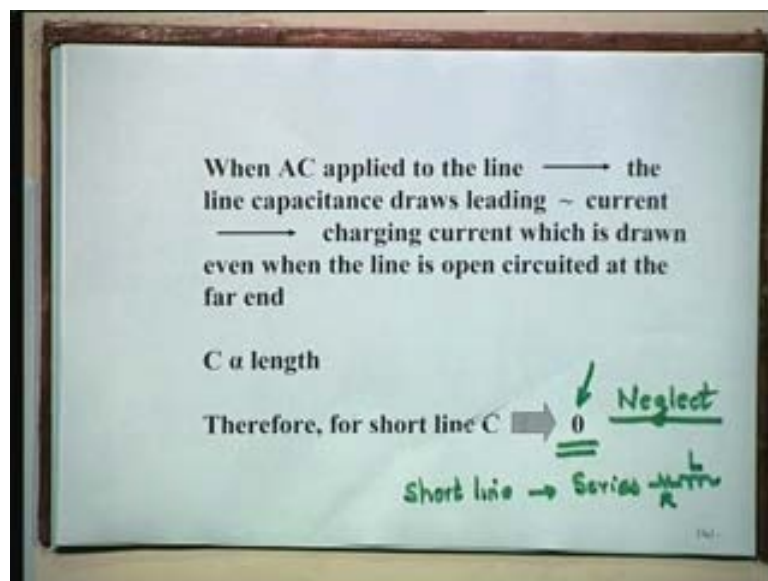 When AC applied to the line ⟶ the
line capacitance draws leading ~ current
⟶ charging current which is drawn
even when the line is open circuited at the
far end
C α length
Therefore, for short line C ⇒ 0 Neglect
Short line → Series R L